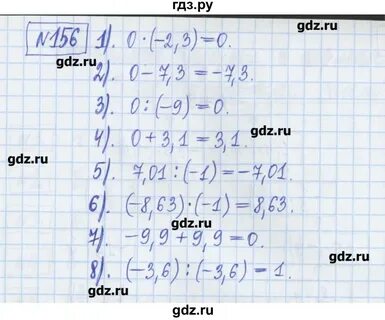 гдз.ру
№156 1). 0·(-2,3)=0.
gdz.ru
2). 0-7,3=-7,3.
gdz.ru
3). 0:(-9)=0.
gdz.ru
4). 0+3,1=3,1.
gdz.ru
5). 7,01:(-1)=-7,01.
gdz.ru
6). (-8,63)·(-1)=8,63.
gdz.ru
7). -9,9+9,9=0.
gdz.ru gdz.ru
8). (-3,6):(-3,6)=1.
gdz.ru